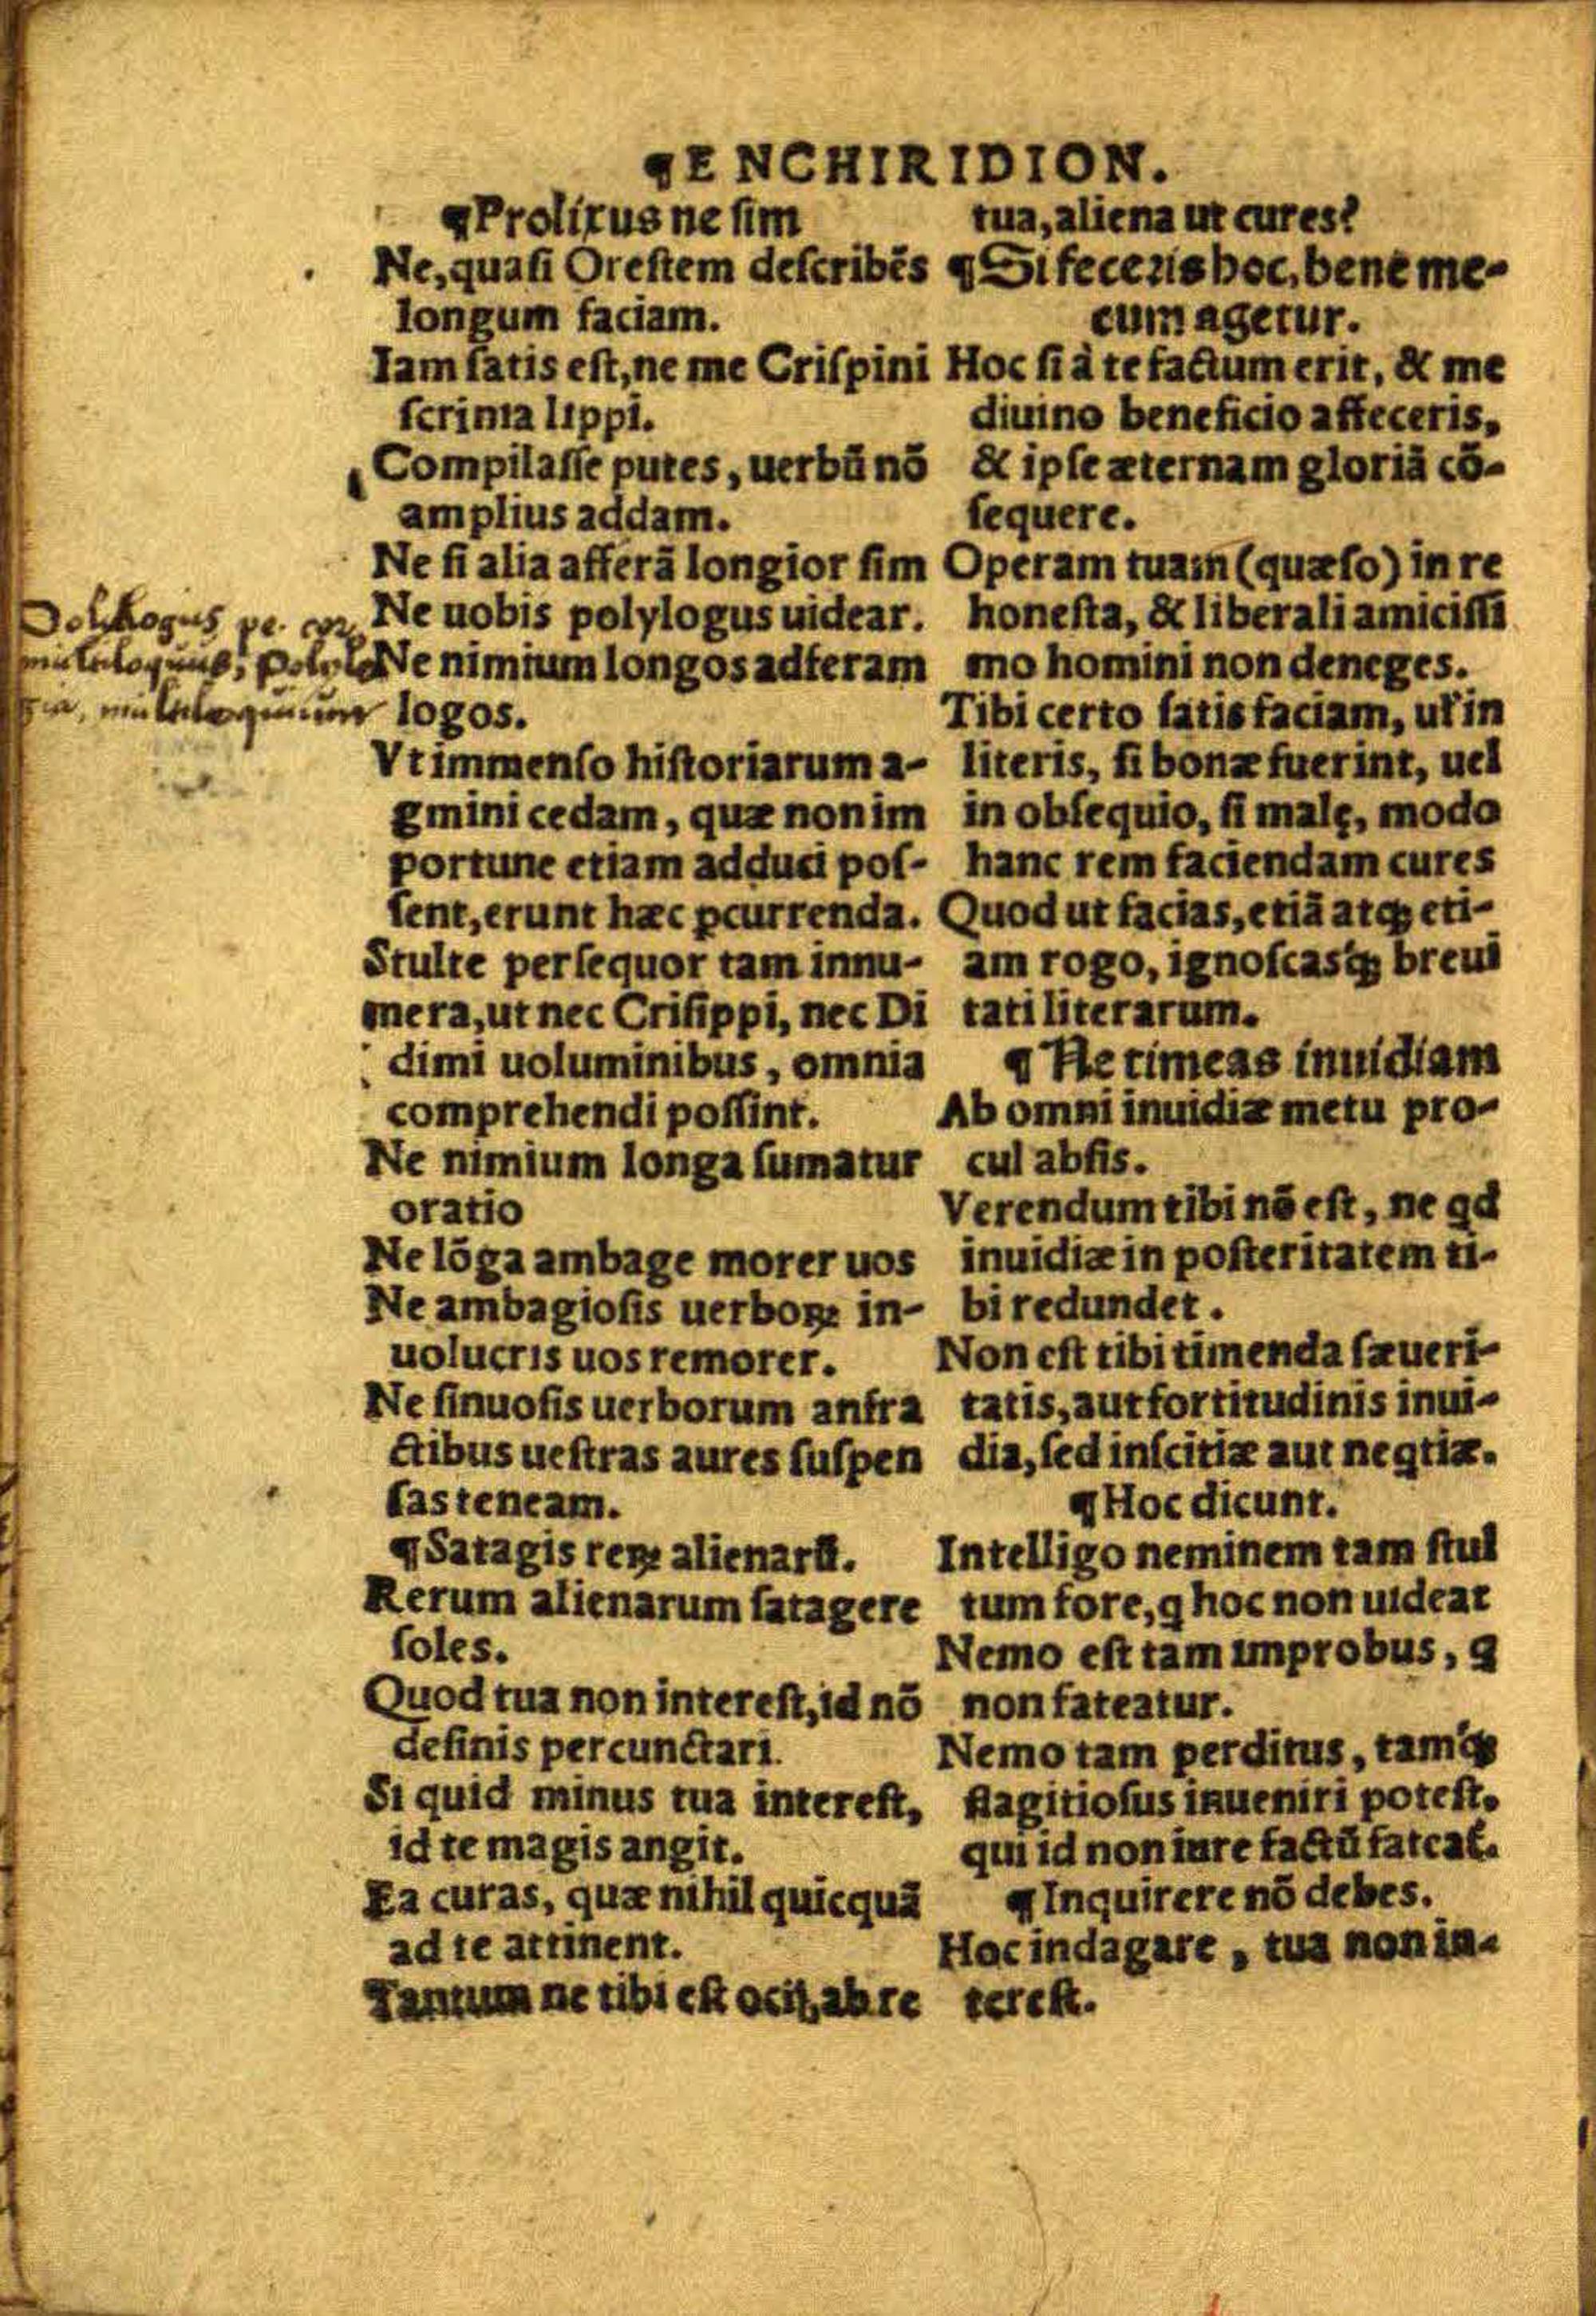 ¶ENCHIRIDION.
¶Prolixus ne ſim
Ne, quaſi Oreſtem deſcribẽs
longum faciam.
Iam ſatis eſt, ne me Criſpini
ſcrinia lippi.
Compilaſſe putes, uerbũ nõ
amplius addam.
Ne ſi alia afferã longior ſim
Ne uobis polylogus uidear.
Ne nimium longos adferam
logos.
Vt immenſo hiſtoriarum a-
gmini cedam, quæ non im
portune etiam adduci poſ-
ſent, erunt hæc ꝑcurrenda.
Stulte perſequor tam innu-
mera, ut nec Criſippi, nec Di
dimi uoluminibus, omnia
comprehendi poſſint.
Ne nimium longa ſumatur
oratio
Ne lõga ambage morer uos
Ne ambagioſis uerboꝝ in-
uolucris uos remorer.
Ne ſinuoſis uerborum anfra
ctibus ueſtras aures ſuſpen
ſas teneam.
¶Satagis reꝝ alienarũ.
Rerum alienarum ſatagere
ſoles.
Quod tua non intereſt, id nõ
deſinis percunctari.
Si quid minus tua intereſt,
id te magis angit.
Ea curas, quæ nihil quicquã
ad te attinent.
Tantum ne tibi eſt ocij, ab re
tua, aliena ut cures?
¶Si feceris hoc, bene me-
cum agetur.
Hoc ſi à te factum erit, & me
diuino beneficio affeceris,
& ipſe æternam gloriã cõ-
ſequere.
Operam tuam (quæſo) in re
honeſta, & liberali amiciſſi
mo homini non deneges.
Tibi certo ſatis faciam, uel' in
literis, ſi bonæ fuerint, uel
in obſequio, ſi malę, modo
hanc rem faciendam cures
Quod ut facias, etiã atqꝫ eti-
am rogo, ignoſcas'qꝫ breui
tati literarum.
¶Ne timeas inuidiam
Ab omni inuidiæ metu pro-
cul abſis.
Verendum tibi nõ eſt, ne qd
inuidiæ in poſteritatem ti-
bi redundet.
Non eſt tibi timenda ſæueri-
tatis, aut fortitudinis inui-
dia, ſed inſcitiæ aut neqtiæ.
¶Hoc dicunt.
Intelligo neminem tam ſtul
tum fore, q hoc non uideat
Nemo eſt tam improbus, q
non fateatur.
Nemo tam perditus, tam'qꝫ
flagitioſus inueniri poteſt,
qui id non iure factũ fateat.
¶Inquirere nõ debes.
Hoc indagare, tua non in-
tereſt.